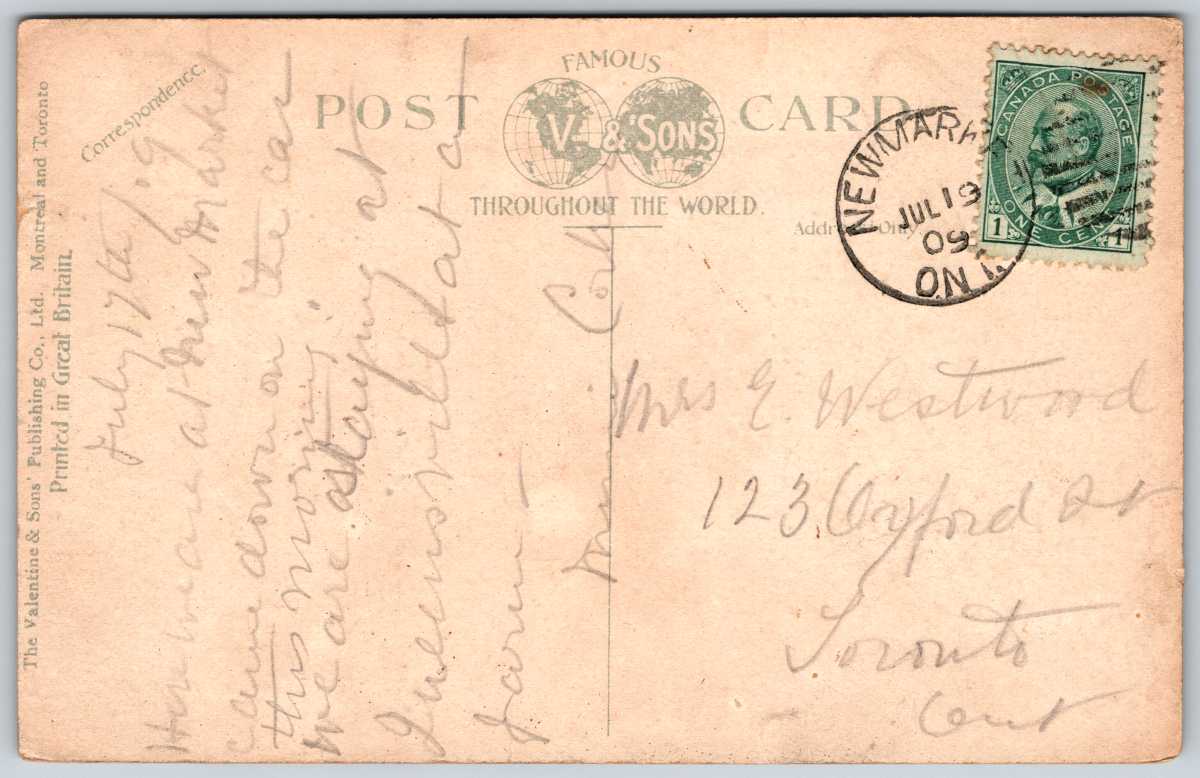 The Valentine & Sons' Publishing Co., Ltd. Montreal and Toronto
Printed in Great Britain.
Correspondence.
FAMOUS
POST CARD
V. & SONS
THROUGHOUT THE WORLD.
Address Only
CANADA POSTAGE
1 ONE CENT 1
NEWMARKET
JUL 19
09
ONT
July 17th / 09
Here we are at New Market
came down on the car
this morning
we are staying at
Queensville at a
farm
Mrs E. Westwood
123 Oxford St
Toronto
Ont